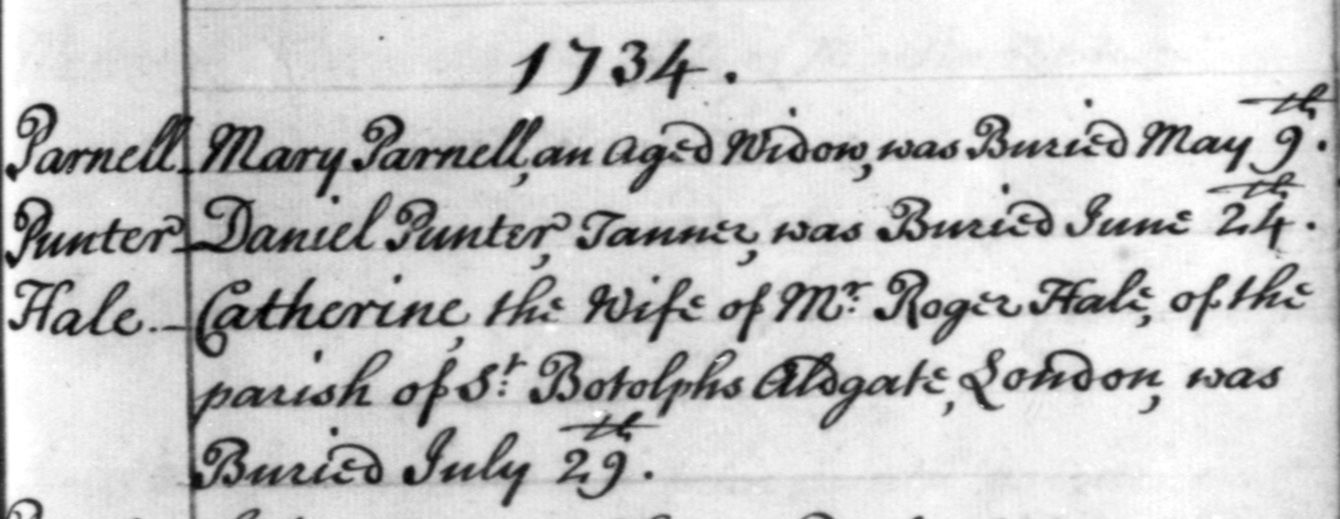 1734.
Parnell Mary Parnell, an aged Widow, was Buried May 9th.
Punter Daniel Punter, Tanner, was Buried June 24th.
Hale. Catherine, the Wife of Mr. Roger Hale, of the
parish of St. Botolphs Aldgate, London, was
Buried July 29th.